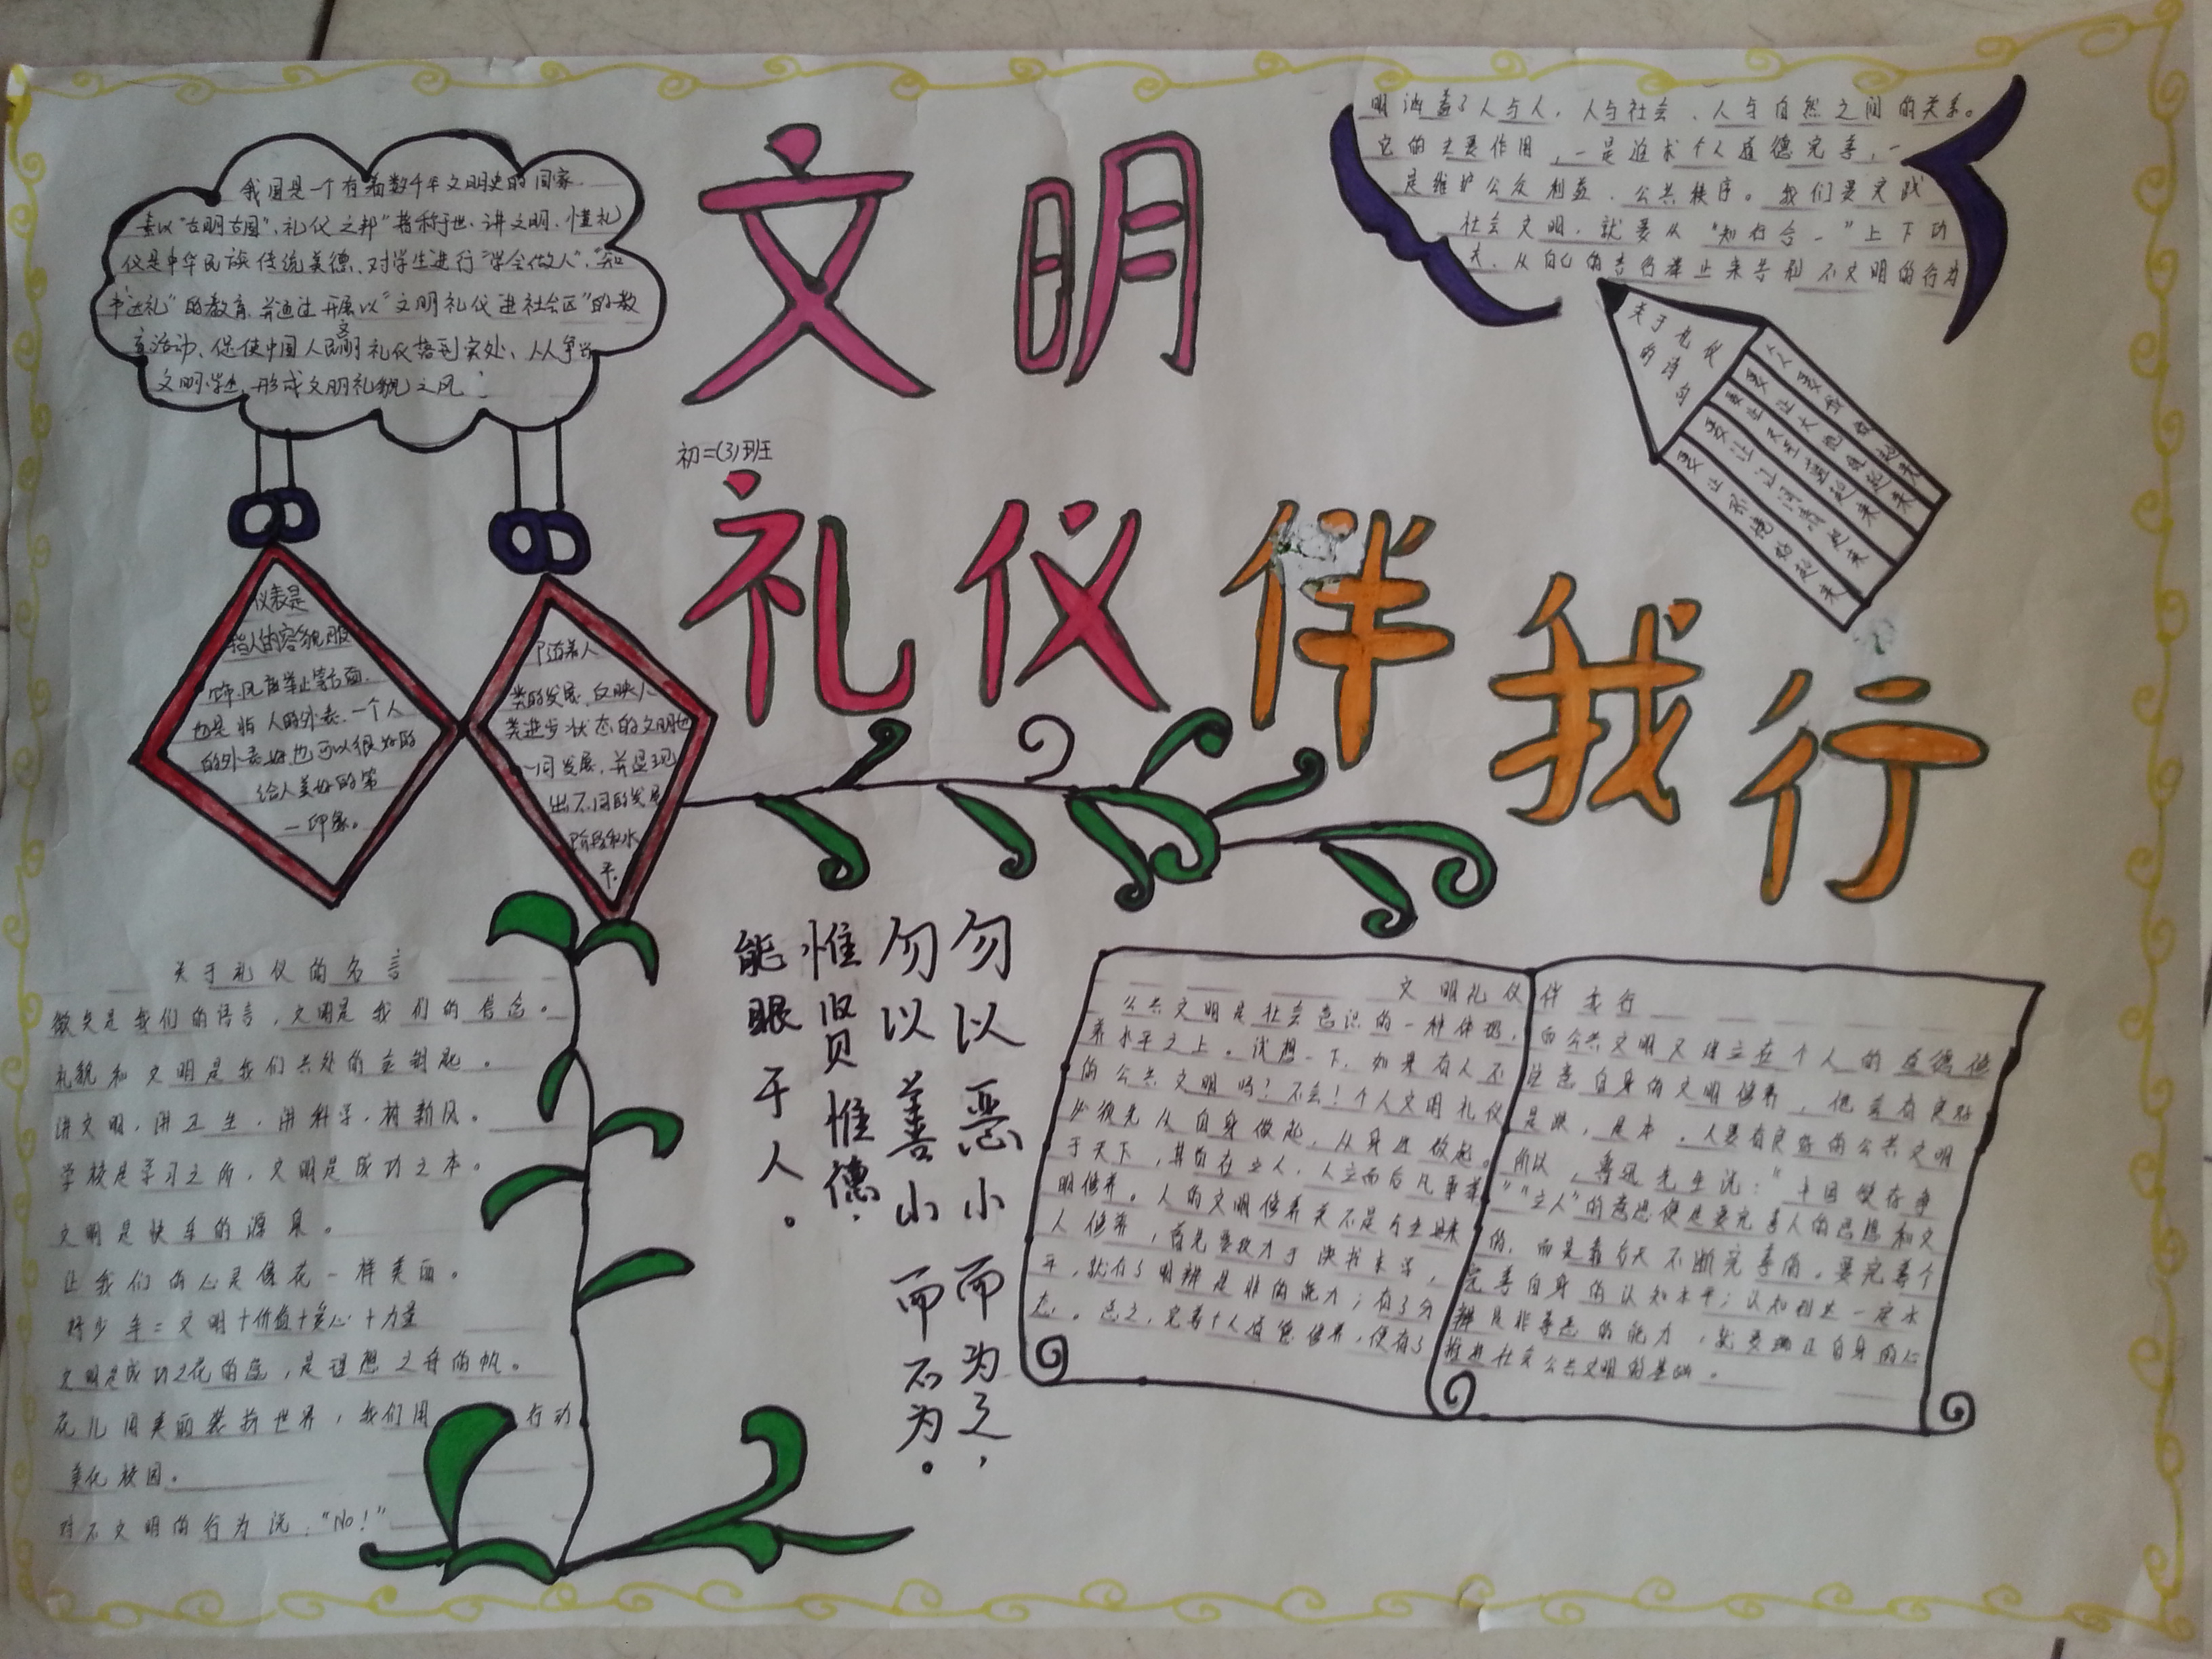 文明
初二(3)班
礼仪伴我行
我国是一个有着数千年文明史的国家.
素以“古明古国”、礼仪之邦”著称于世.讲文明.懂礼
仪是中华民族传统美德、对学生进行“学会做人”、“知
书达礼”的教育.并通过开展以“文明礼仪进社会区”的教
育活动、促使中国人民文明礼仪落到实处、人人争当
文明学生.形成文明礼貌之风
仪表是
指人的容貌服
饰.风度举止等方面.
也是指人的外表.一个人
的外表好也可以很好的
给人美好的第
一印象。
随着人
类的发展.反映人
类进步状态的文明也
一同发展.并呈现
出不同的发展
阶段和水
平.
明涵盖了人与人,人与社会、人与自然之间的关系。
它的主要作用,一是追求个人道德完善,一
是维护公众利益、公共秩序。我们要实践
社会文明,就要从“知行合一”上下功
夫.从自己的言行举止来告别不文明的行为
关于礼仪
的诗句
关于礼仪的名言
微笑是我们的语言,文明是我们的信念。
礼貌和文明是我们共处的金钥匙。
讲文明.讲卫生.讲科学.树新风。
学校是学习之所,文明是成功之本。
文明是快乐的源泉。
让我们的心灵像花一样美丽。
好少年=文明+价值+爱心+力量
文明是成功之花的蕊,是理想之舟的帆。
花儿用美丽装扮世界,我们用 行动
美化校园。
对不文明的行为说:“No!”
勿以恶小而为之,
勿以善小而不为。
惟贤惟德,
能服于人。
文明礼仪伴我行
公共文明是社会意识的一种体现,而公共文明又建立在个人的道德修
养水平之上。试想一下.如果有人不注意自身的文明修养,他会有良好
的公共文明吗?不会!个人文明礼仪是根,是本.人要有良好的公共文明
必须先从自身做起,从身边做起。所以,鲁迅先生说:“中国欲存争
于天下,其首在立人,人立而后凡事举”“立人”的意思便是要完善人的思想和文
明修养。人的文明修养关不是与生俱来的,而是靠后天不断完善的。要完善个
人修养,首先要致力于读书求学,完善自身的认知水平;认知到达一定水
平,就有了明辨是非的能力;有了分辨是非善恶的能力,就要端正自身的心
态。总之,完善个人道德修养,便有了推进社会公共文明的基础。